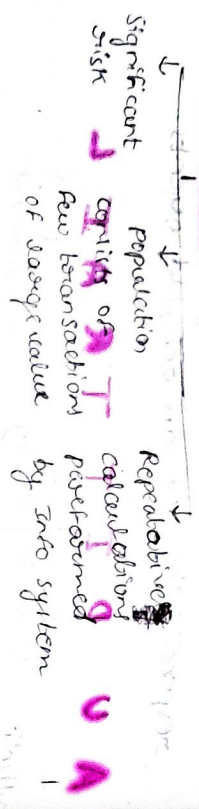 Significant
risk
population
consists of
few transactions
of large value
Repeatative
calculations
performed
by Info system